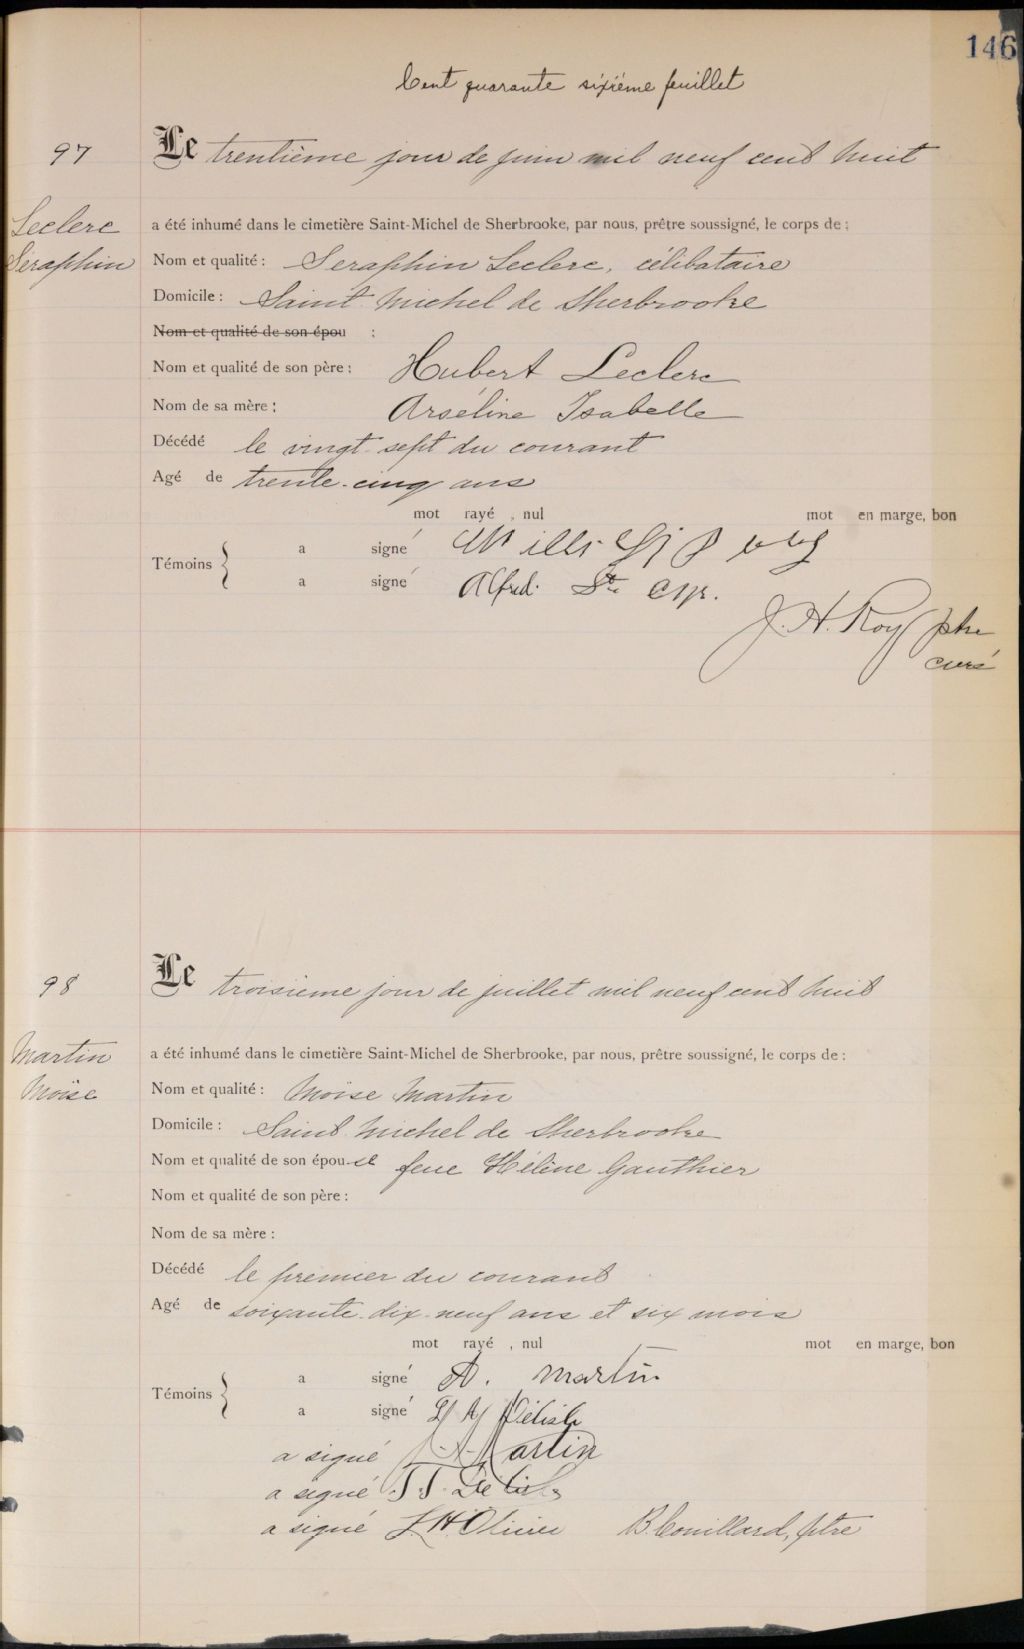 146
Cent quarante sixième feuillet
97
Le trentième jour de juin mil neuf cent huit
Leclerc
Seraphin
a été inhumé dans le cimetière Saint-Michel de Sherbrooke, par nous, prêtre soussigné, le corps de :
Nom et qualité : Seraphin Leclerc, célibataire
Domicile : Saint Michel de Sherbrooke
Nom et qualité de son épou :
Nom et qualité de son père : Hubert Leclerc
Nom de sa mère : Arséline Isabelle
Décédé le vingt-sept du courant
Agé de trente-cinq ans
mot rayé , nul mot en marge, bon
Témoins { a signé
a signé Alfred. Ste
J. H. Roy ptre
curé
98
Le troisième jour de juillet mil neuf cent huit
Martin
Moïse
a été inhumé dans le cimetière Saint-Michel de Sherbrooke, par nous, prêtre soussigné, le corps de :
Nom et qualité : Moïse Martin
Domicile : Saint Michel de Sherbrooke
Nom et qualité de son épouse feue Hélène Gauthier
Nom et qualité de son père :
Nom de sa mère :
Décédé le premier du courant
Agé de soixante-dix-neuf ans et six mois
mot rayé , nul mot en marge, bon
Témoins { a signé A. Martin
a signé
a signé Martin
a signé
a signé L H Olivier B. Couillard, ptre